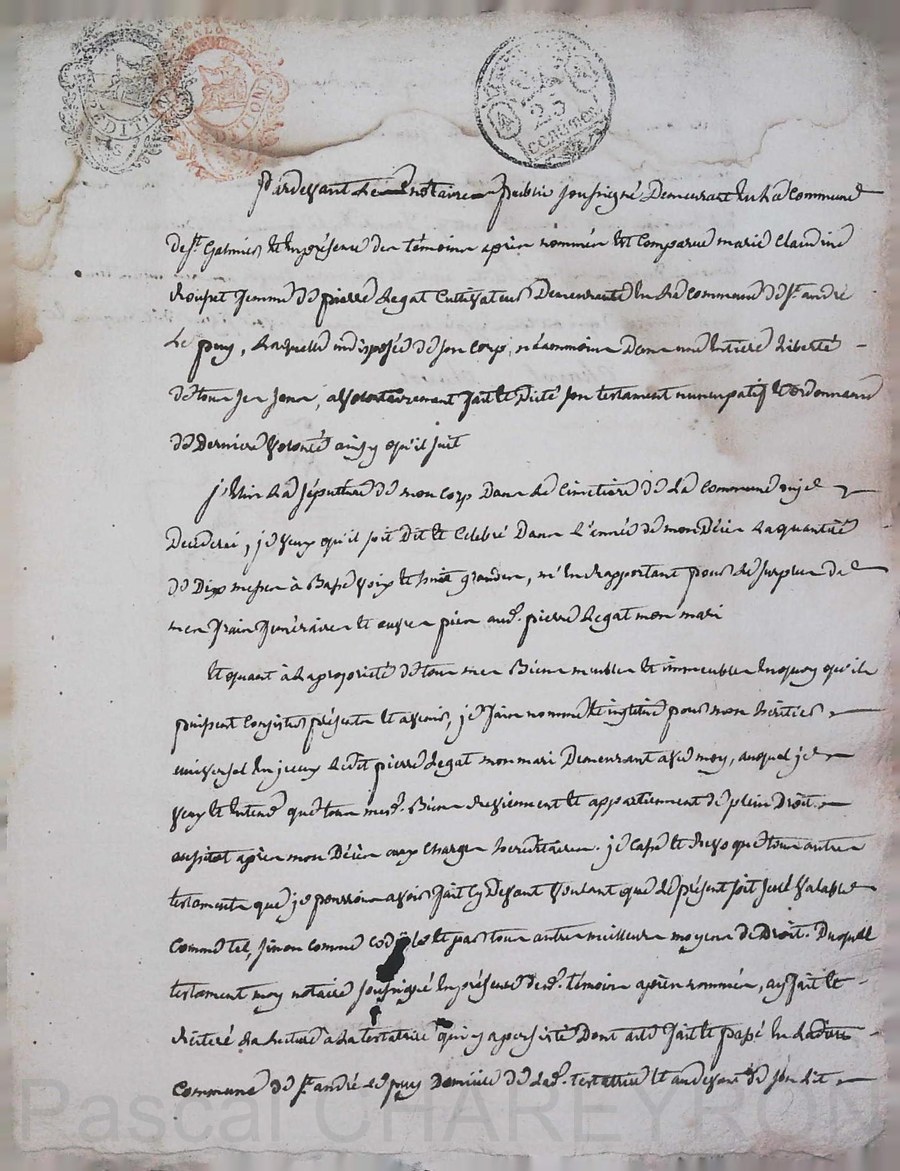 EDITION
EDITION
25
centimes
Pardevant le notaire public soussigné Demeurant en la Commune
De st. Galmier et en présence des témoins après nommés est Comparue marie Claudine
Rousset femme de pierre Legat Cultivateur Demeurante en la Commune de st. andré
Le puy, Laquelle indisposée de son Corps, néanmoins Dans une entiere Liberté
de tous ses sens, a volontairement fait et Dicté son testament nuncupatif et ordonnance
de Derniere volonté ainsy qu'il suit
j'Elis La sépulture de mon Corps Dans Le Cimetiere de La Commune ou je
Decéderai, je veux qu'il soit Dit et Celebré Dans L'année de mon Décès La quantité
de Dix messes à Basse voix et huit grandes, m'en rapportant pour le surplus de
mes frais funéraires et œuvres pies aud. pierre Legat mon mari
Et quant à La propriété de tous mes Biens meubles et immeubles en quoy qu'ils
puissent Consister présents et avenir, je fais nomme et institue pour mon héritier
universel en jceux Ledit pierre Legat mon mari Demeurant avec moy, auquel je
veux et entend que tous mesd. Biens reviennent et appartiennent de plein Droit
aussitot après mon Décès aux Charges héréditaires. je Casse et Revoque tous autres
testaments que je pourrois avoir fait Cy Devant voulant que Le présent soit seul valable
Comme tel, sinon comme codicile et par tous autres meilleurs moyens de Droit. Duquel
testament moy notaire soussigné en présence desd. témoins après nommés, ay fait et
réitéré La Lecture à La testatrice qui y a persisté Dont acte fait et passé en Ladite
Commune de st. andré Le puy Domicile de Lad. testatrice et audevant de son Lit
Pascal CHAREYRON